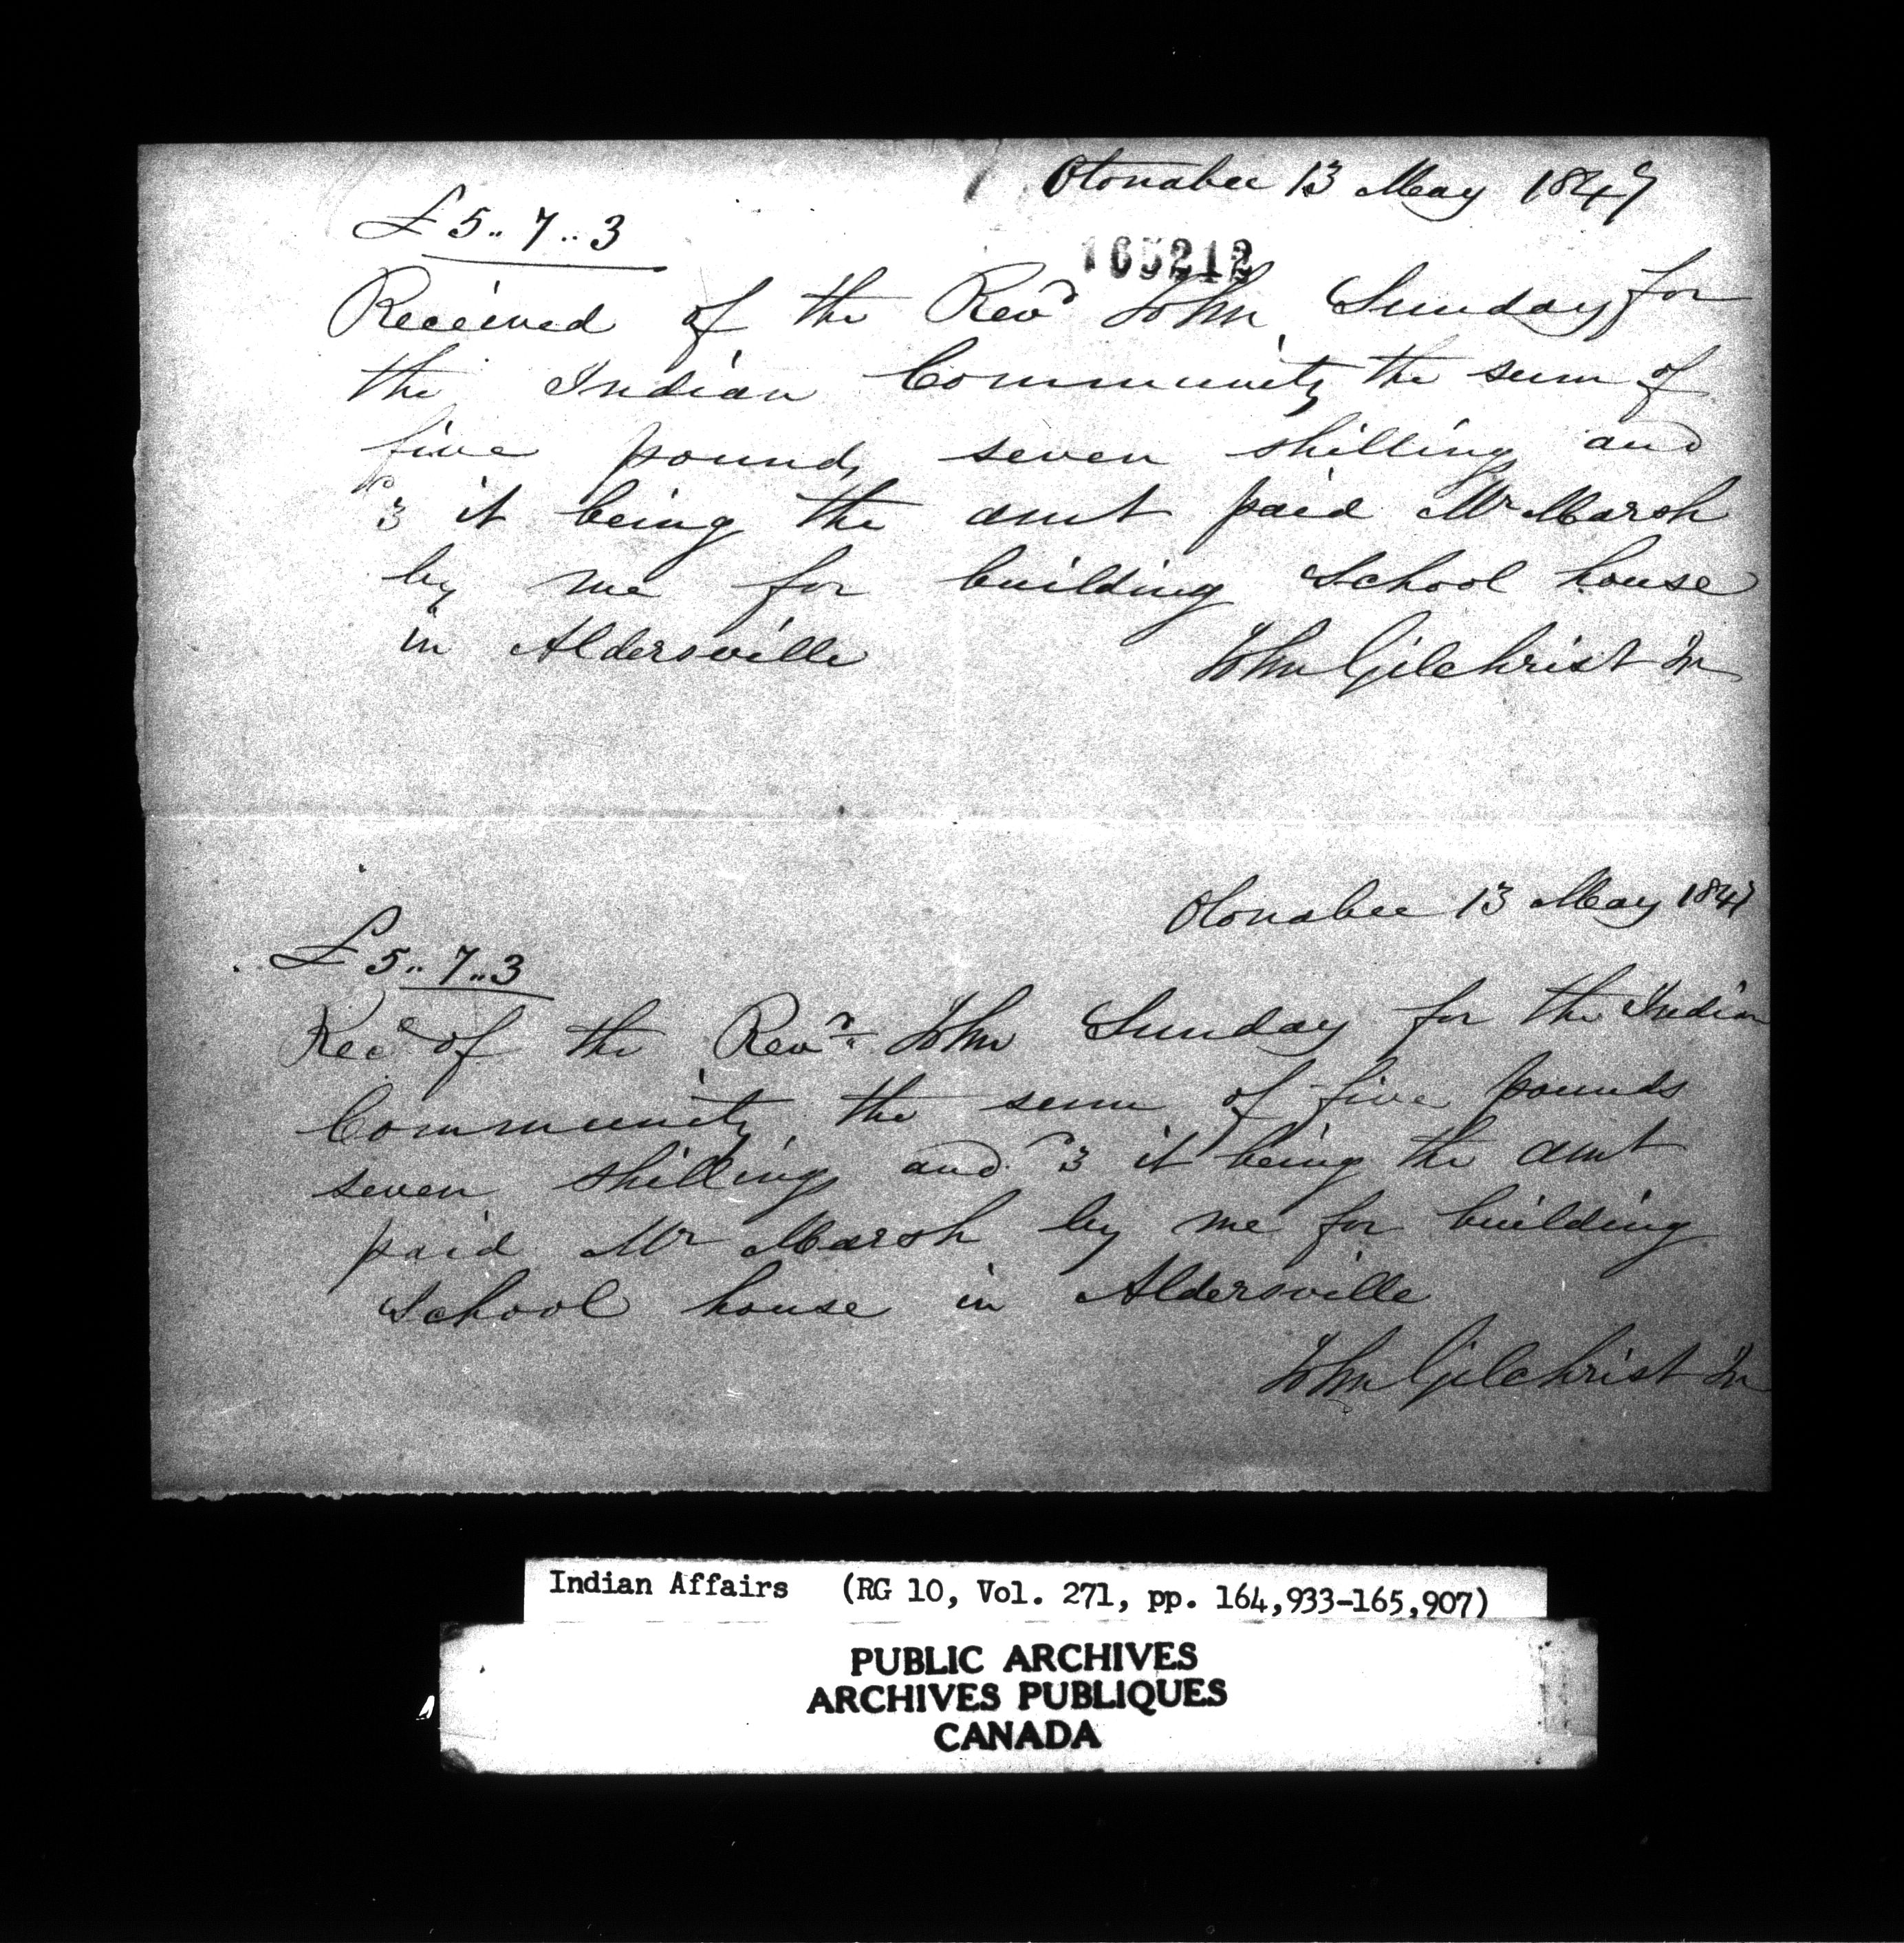 Otonabee 13 May 1847
£5..7..3
165212
Received of the Revd John Sunday for
the Indian Community the sum of
five pounds seven shillings and
3 it being the amt paid Mr Marsh
by me for building School house
in Aldersville
John Gilchrist Jn
Otonabee 13 May 1847
£5..7..3
Recd of the Revd John Sunday for the Indian
Community the sum of five pounds
seven shillings and 3 it being the amt
paid Mr Marsh by me for building
School house in Aldersville
John Gilchrist Jn
Indian Affairs (RG 10, Vol. 271, pp. 164,933-165,907)
PUBLIC ARCHIVES
ARCHIVES PUBLIQUES
CANADA